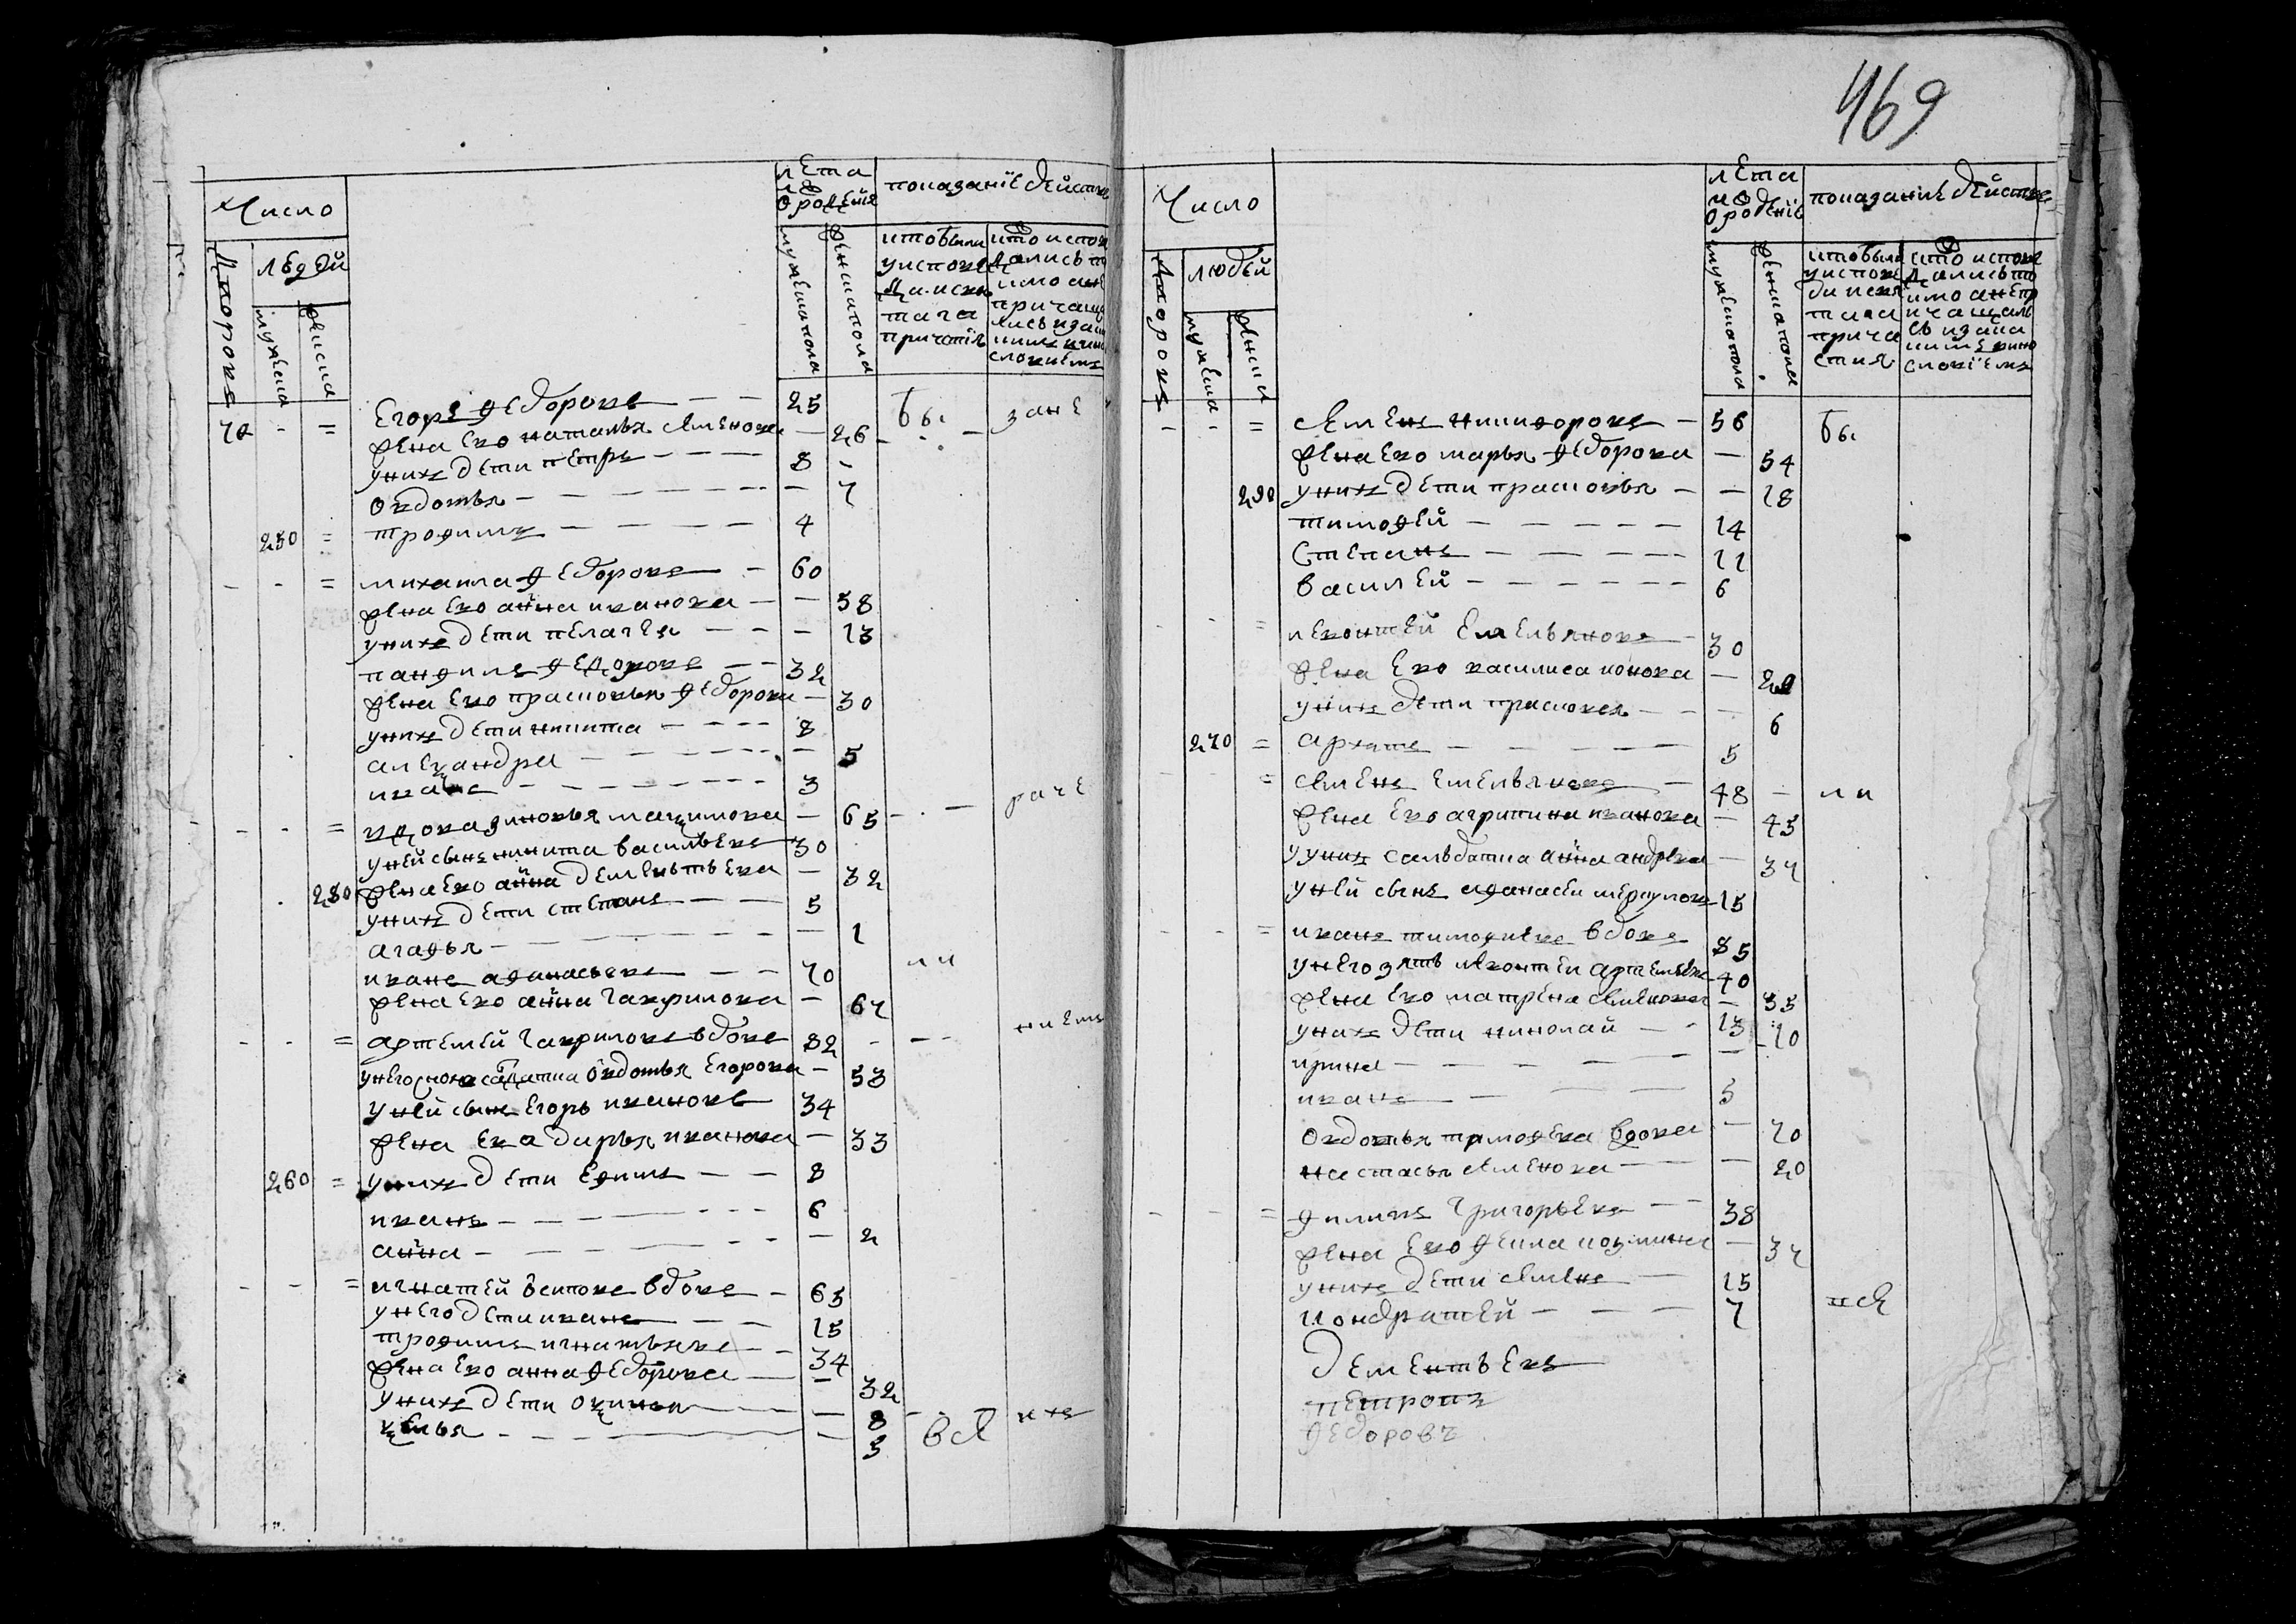 469
Число
лѣта
ѿ рожденія
показаніе действ
дворовъ
людей
мужеска
женска
мужеска пола
женска пола
кто были
у испове
ди и св
таго
причастія
кто испове
дались то
кмо а не
причащ
лись и за
каким вино
словием
Егоръ Федоровъ 25 бы за не
72 жена ево наталья Семенова 26
у них дети петръ 8
овдотья 7
250 трофимъ 4
михаила Федоровъ 60
жена ево анна иванова 58
у них дети пелагея 13
панфилъ Федоровъ 32
жена ево прасковья Федорова 30
у них дети никита 8
александра 5
иванъ 3
вдова зиновья максимова 65 раче
у ней сынъ никита васильевъ 30
280 жена ево анна дементьева 32
у них дети степанъ 5
агафья 1
иванъ афанасьевъ 70 ли
жена ево анна гаврилова 67
артемей гавриловъ вдовъ 82 нием
у него сноха салдатка овдотья Егорова 53
у ней сынъ Егоръ ивановъ 34
жена ева дарья иванова 33
260 у них дети Ефимъ 8
иванъ 6
анна 2
игнатей осиповъ вдовъ 65
у него дети иванъ 15
трофимъ игнатьевъ 34
жена ево анна Федорова 32
у них дети оксинья 8 ихъ
5 всѣ
Число
лѣта
ѿ рождение
показание действ
дворовъ
людей
мужеска
женска
мужеска пола
женска пола
кто были
у испове
ди и свя
таго
прича
стия
кто испове
дались то
кмо а не пр
ичащали
сь и за ка
ким вино
словіемъ
Семенъ никифоровъ 56 бы
жена ево марья Федорова 54
290 у них дети прасковья 18
тимофей 14
Степанъ 11
василей 6
леонтей Емельяновъ 30
жена ево василиса конова
у них дети прасковья 6
270 архипъ 5
Семенъ Емельяновъ 48 ли
жена ево агрипина иванова 45
у них салдатка анна андреева 37
у ней сынъ афанасеи 15
иванъ тимофеевъ вдовъ 85
у него зять леонтеи артемьевъ 40
жена ево матрена Семенова 35
у них дети николай 13
ирина 10
иванъ 5
овдотья тимофеева вдова 70
настасья Семенова 20
филипъ григорьевъ 38
жена ево фекла козмина 37
у них дети Семенъ 15
кондратей 7 всѣ
дементьевъ
петровъ
Федоровъ